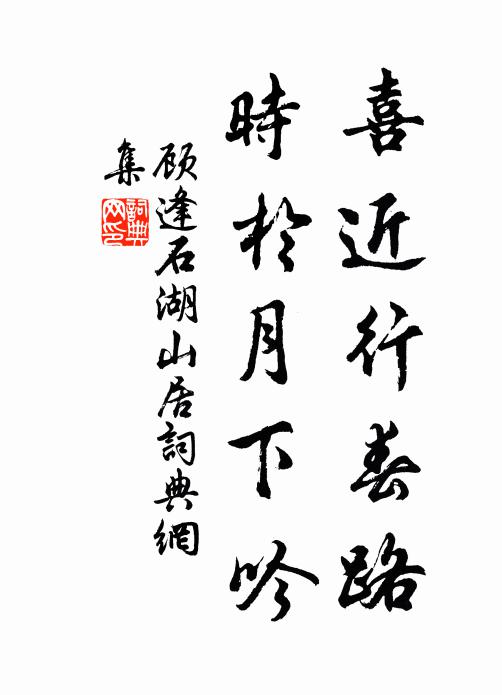 喜近行春路
時於月下吟
顾逢石湖山居詞典網
集
詞典
网印